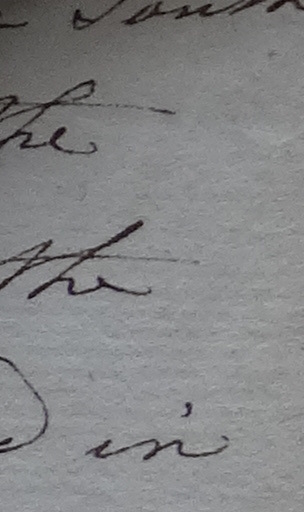 South
the
the
in